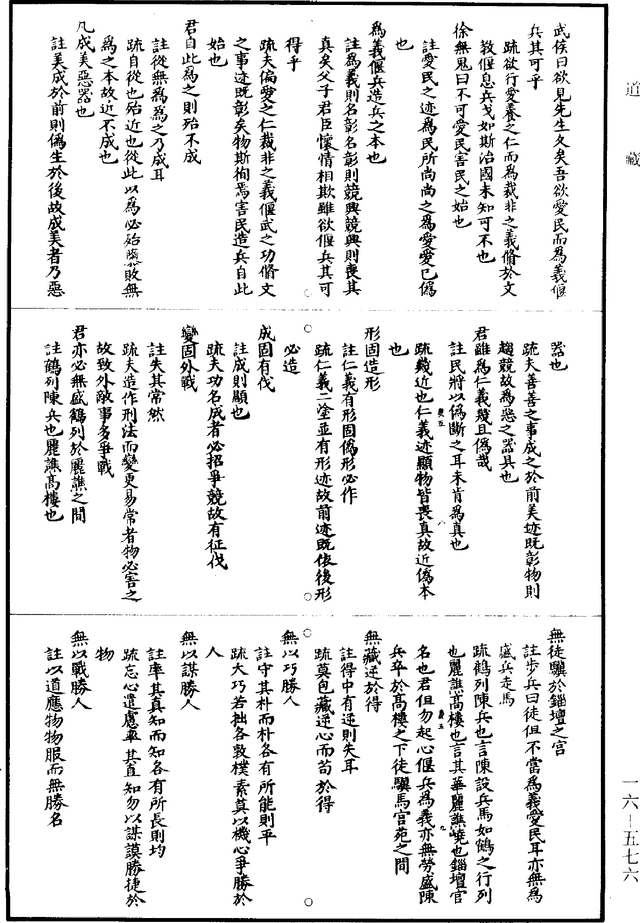 道藏
武侯曰欲見先生久矣吾欲愛民而爲義偃
兵其可乎
疏欲行愛養之仁而爲裁非之義脩於文
教偃息兵戈如斯治國未知可不也
徐無鬼曰不可愛民害民之始也
註愛民之迹爲民所尚尚之爲愛愛已僞
也
爲義偃兵造兵之本也
註爲義則名彰名彰則競興競興則喪其
真矣父子君臣懷情相欺雖欲偃兵其可
得乎
疏夫偏愛之仁裁非之義偃武之功脩文
之事迹既彰矣物斯徇焉害民造兵自此
始也
君自此爲之則殆不成
註從無爲爲之乃成耳
疏自從也殆近也從此以爲必殆隳敗無
爲之本故近不成也
凡成美惡器也
註美成於前則僞生於後故成美者乃惡
器也
疏夫善善之事成之於前美迹既彰物則
趨競故爲惡之器具也
君雖爲仁義幾且僞哉
註民將以僞斷之耳未肯爲真也
疏幾近也仁義迹顯物皆喪真故近僞本
也
形固造形
註仁義有形固僞形必作
疏仁義二塗並有形迹故前迹既依後形
必造
成固有伐
註成則顯也
疏夫功名成者必招爭競故有征伐
變固外戰
註失其常然
疏夫造作刑法而變更易常者物必害之
故致外敵事多爭戰
君亦必無盛鶴列於麗譙之間
註鶴列陳兵也麗譙高樓也
無徒驥於錙壇之宫
註步兵曰徒但不當爲義愛民耳亦無爲
盛兵走馬
疏鶴列陳兵也言陳設兵馬如鶴之行列
也麗譙高樓也言其華麗譙嶢也錙壇宮
名也君但勿起心偃兵爲義亦無勞盛陳
兵卒於高樓之下徒驥馬宫苑之間
無藏逆於得
註得中有逆則失耳
疏莫包藏逆心而苟於得
無以巧勝人
註守其朴而朴各有所能則平
疏大巧若拙各敦樸素莫以機心爭勝於
人
無以謀勝人
註率其真知而知各有所長則均
疏忘心遣慮率其真知勿以謀謨勝捷於
物
無以戰勝人
註以道應物物服而無勝名
一六—五七六